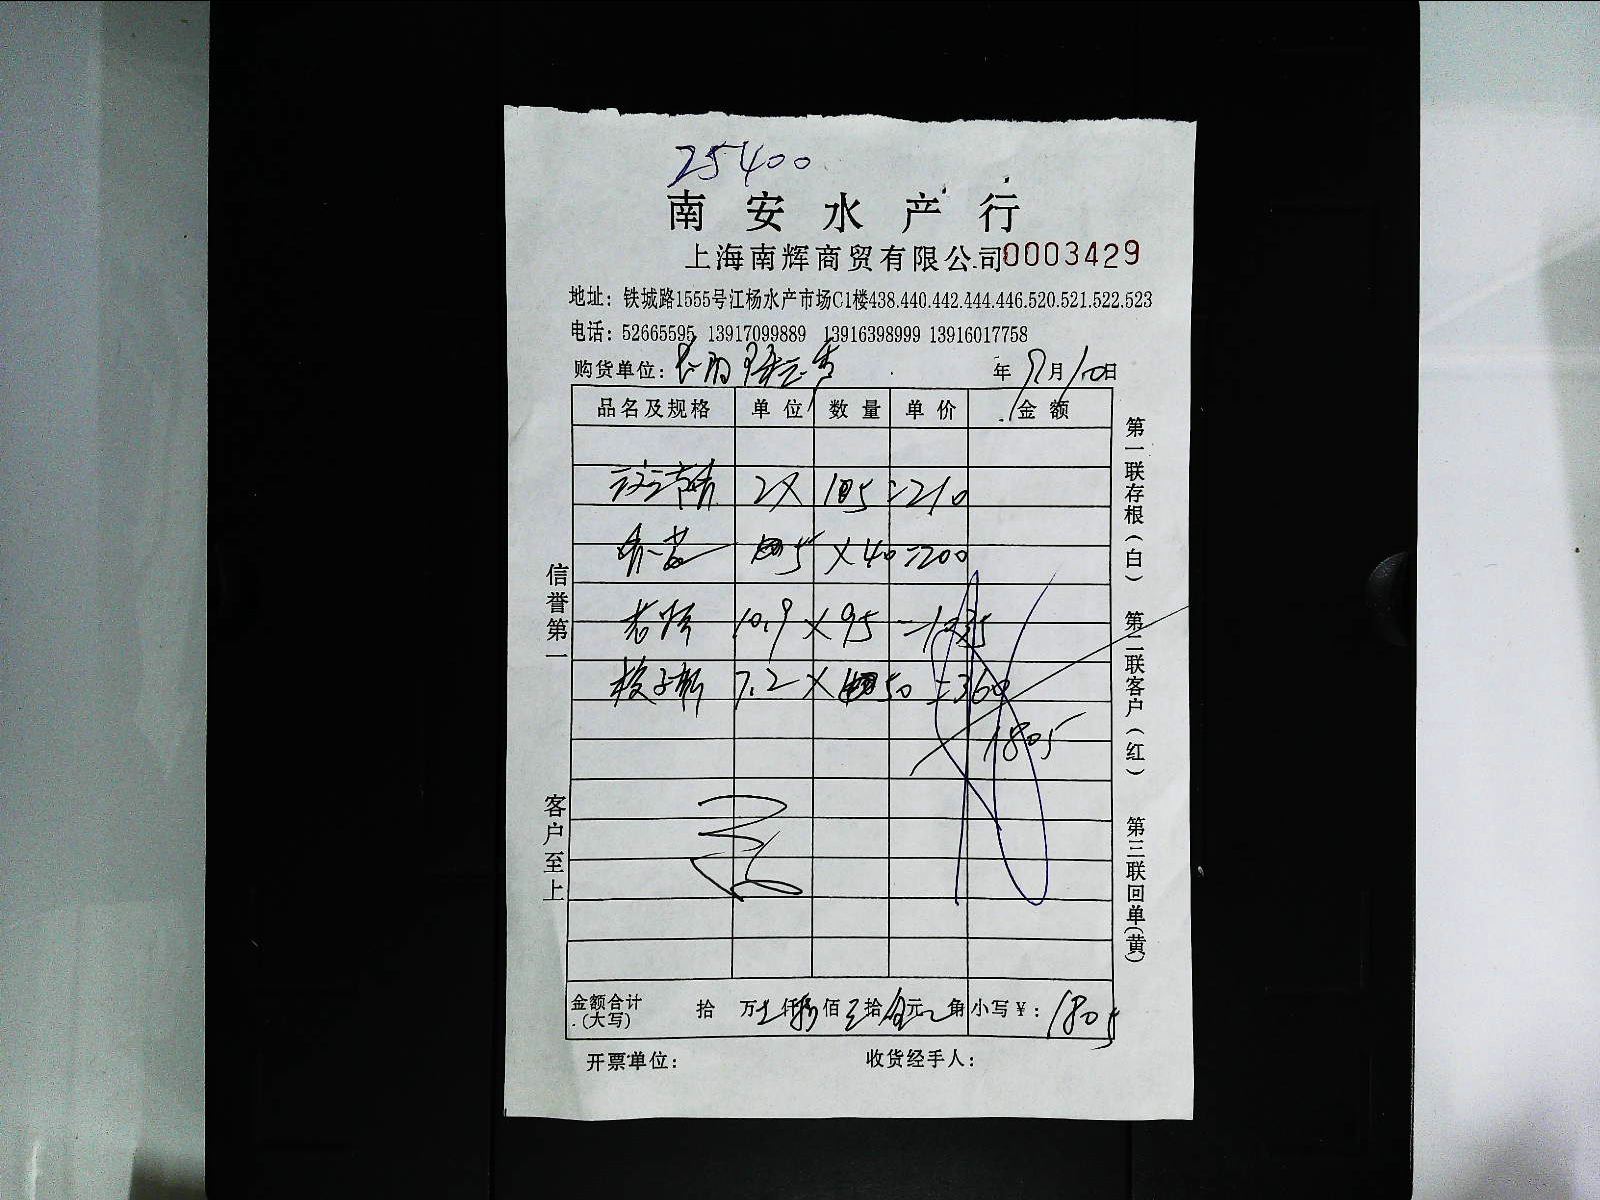 25400
南安水产行
上海南辉商贸有限公司0003429
地址：铁城路1555号江杨水产市场C1楼438.440.442.444.446.520.521.522.523
电话：52665595 13917099889 13916398999 13916017758
购货单位： 年9月10日
品名及规格 单位 数量 单价 金额
2X 105=210
5×40=200
老 10.9×95=1035
7.2×50=360
1805
金额合计(大写) 拾 万 仟 佰 拾 元 角 小写￥：1805
开票单位： 收货经手人：
信誉第一
客户至上
第一联存根(白)
第二联客户(红)
第三联回单(黄)